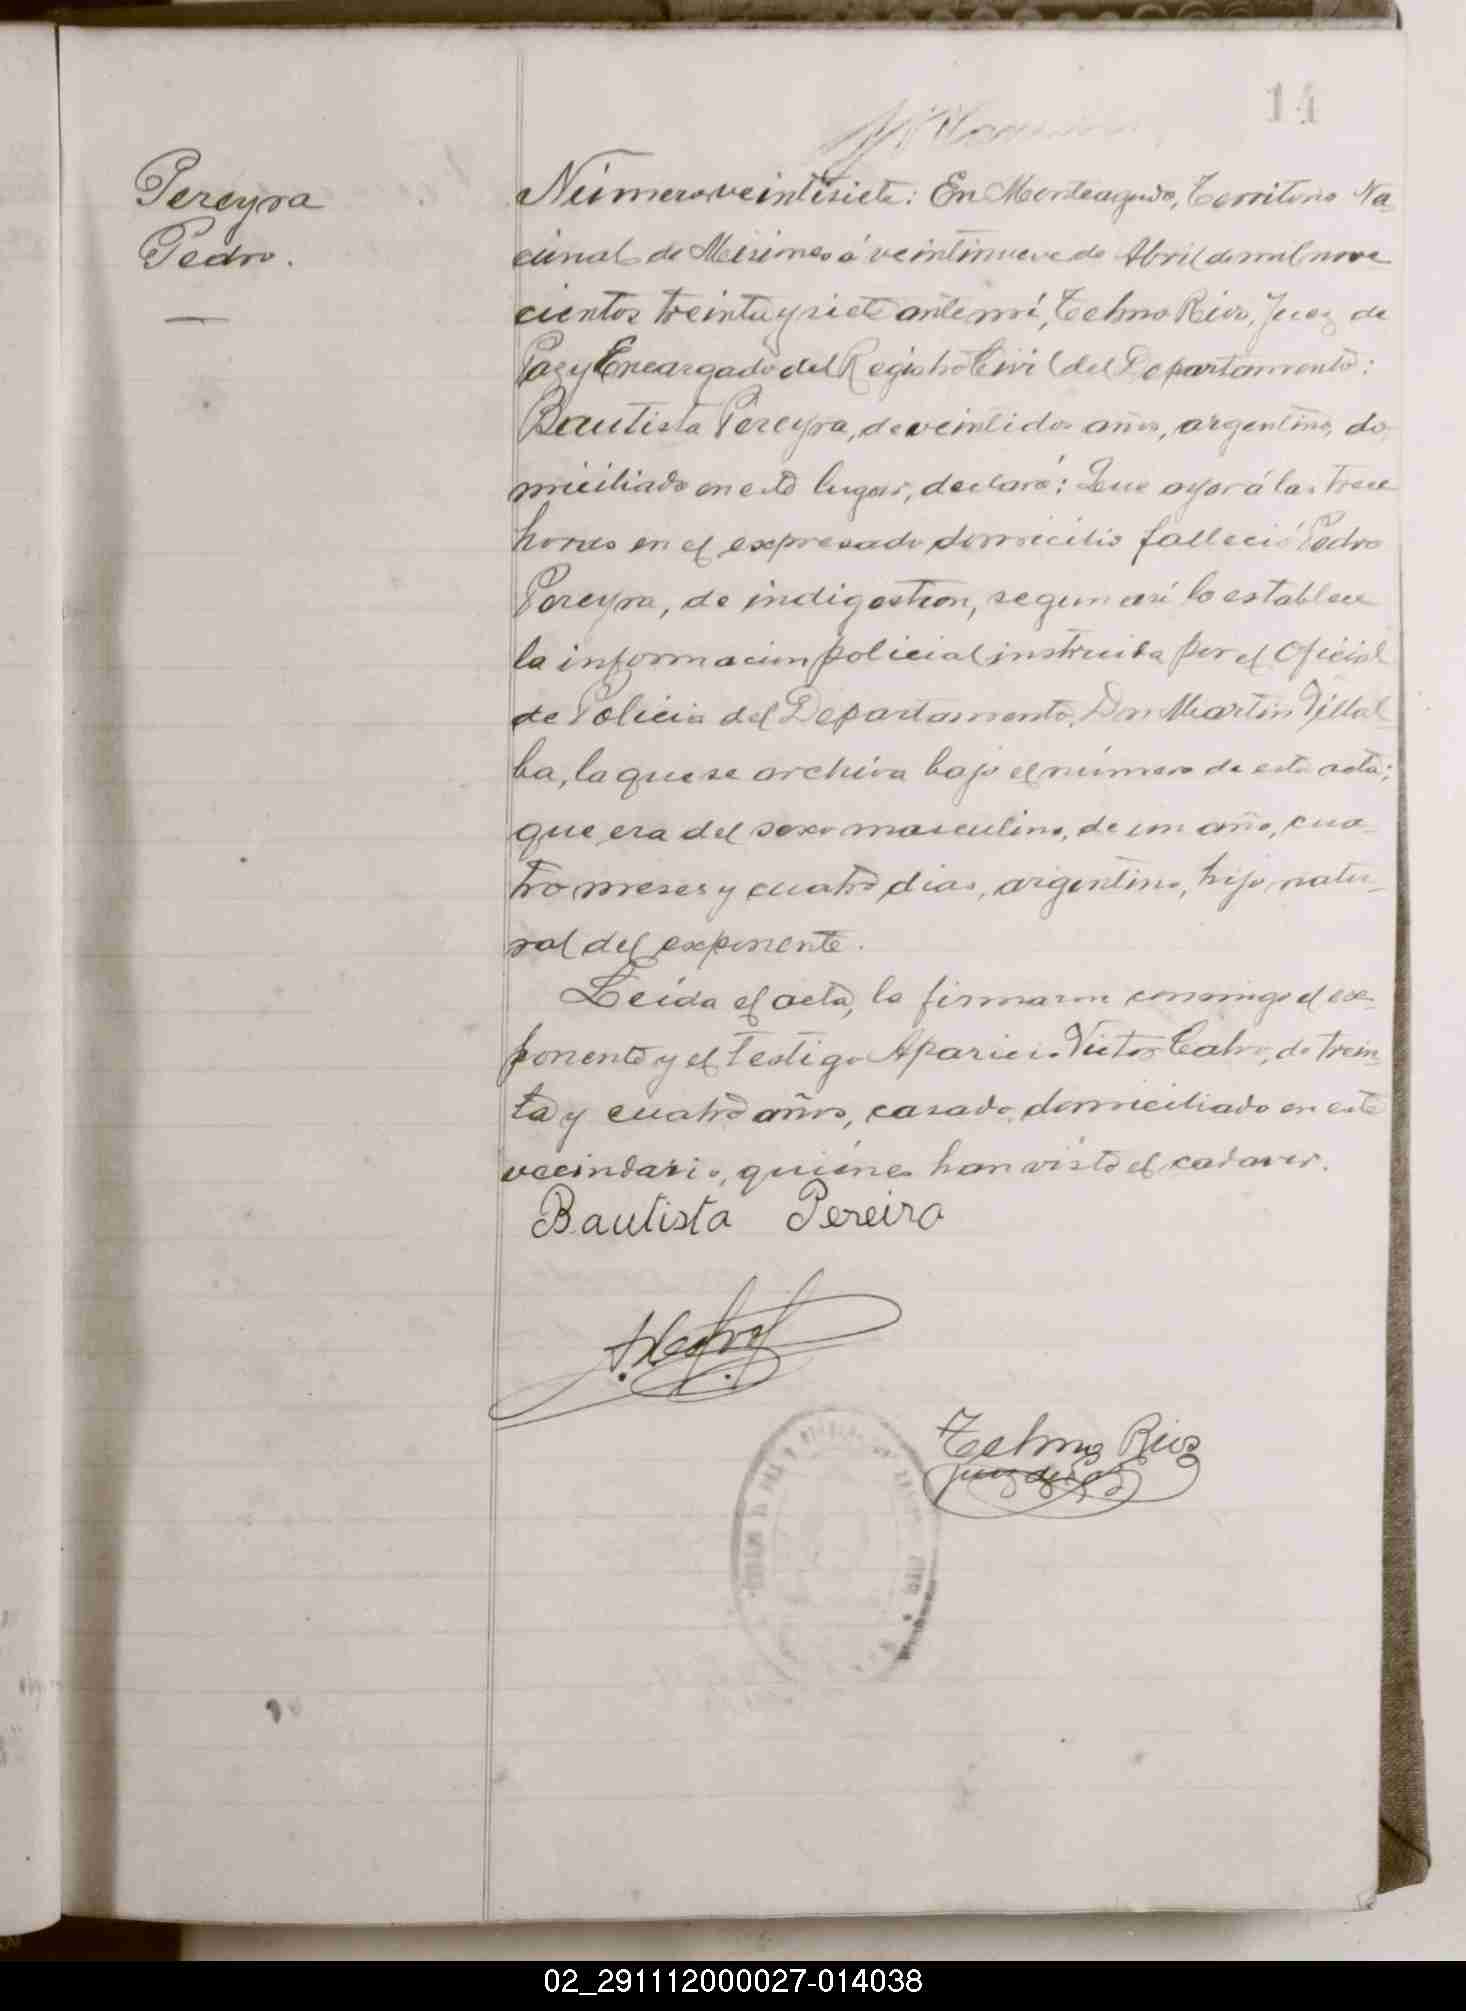 14
Pereyra
Pedro.
Número veintisiete: En Monteagudo, Territorio Na-
cional de Misiones á veintinueve de Abril de mil nove
cientos treinta y siete ante mí, Telmo Rios, Juez de
Paz y Encargado del Registro Civil del Departamento:
Bautista Pereyra, de veintidos años, argentino, do
miciliado en este lugar, declaró: Que ayer á las trece
horas en el expresado domicilio falleció Pedro
Pereyra, de indigestion, segun asi lo establece
la informacion policial instruida por el Oficial
de Policia del Departamento, Don Martin Villal
ba, la que se archiva bajo el número de esta acta;
que era del sexo masculino, de un año, cua-
tro meses y cuatro dias, argentino, hijo natu-
ral del exponente.
Leída el acta, la firmaron conmigo el ex-
ponente y el testigo Aparicio Victor Calvo, de trein-
ta y cuatro años, casado, domiciliado en este
vecindario, quiénes han visto el cadaver.
Bautista Pereira
Telmo Rios
Juez de Paz
02_291112000027-014038